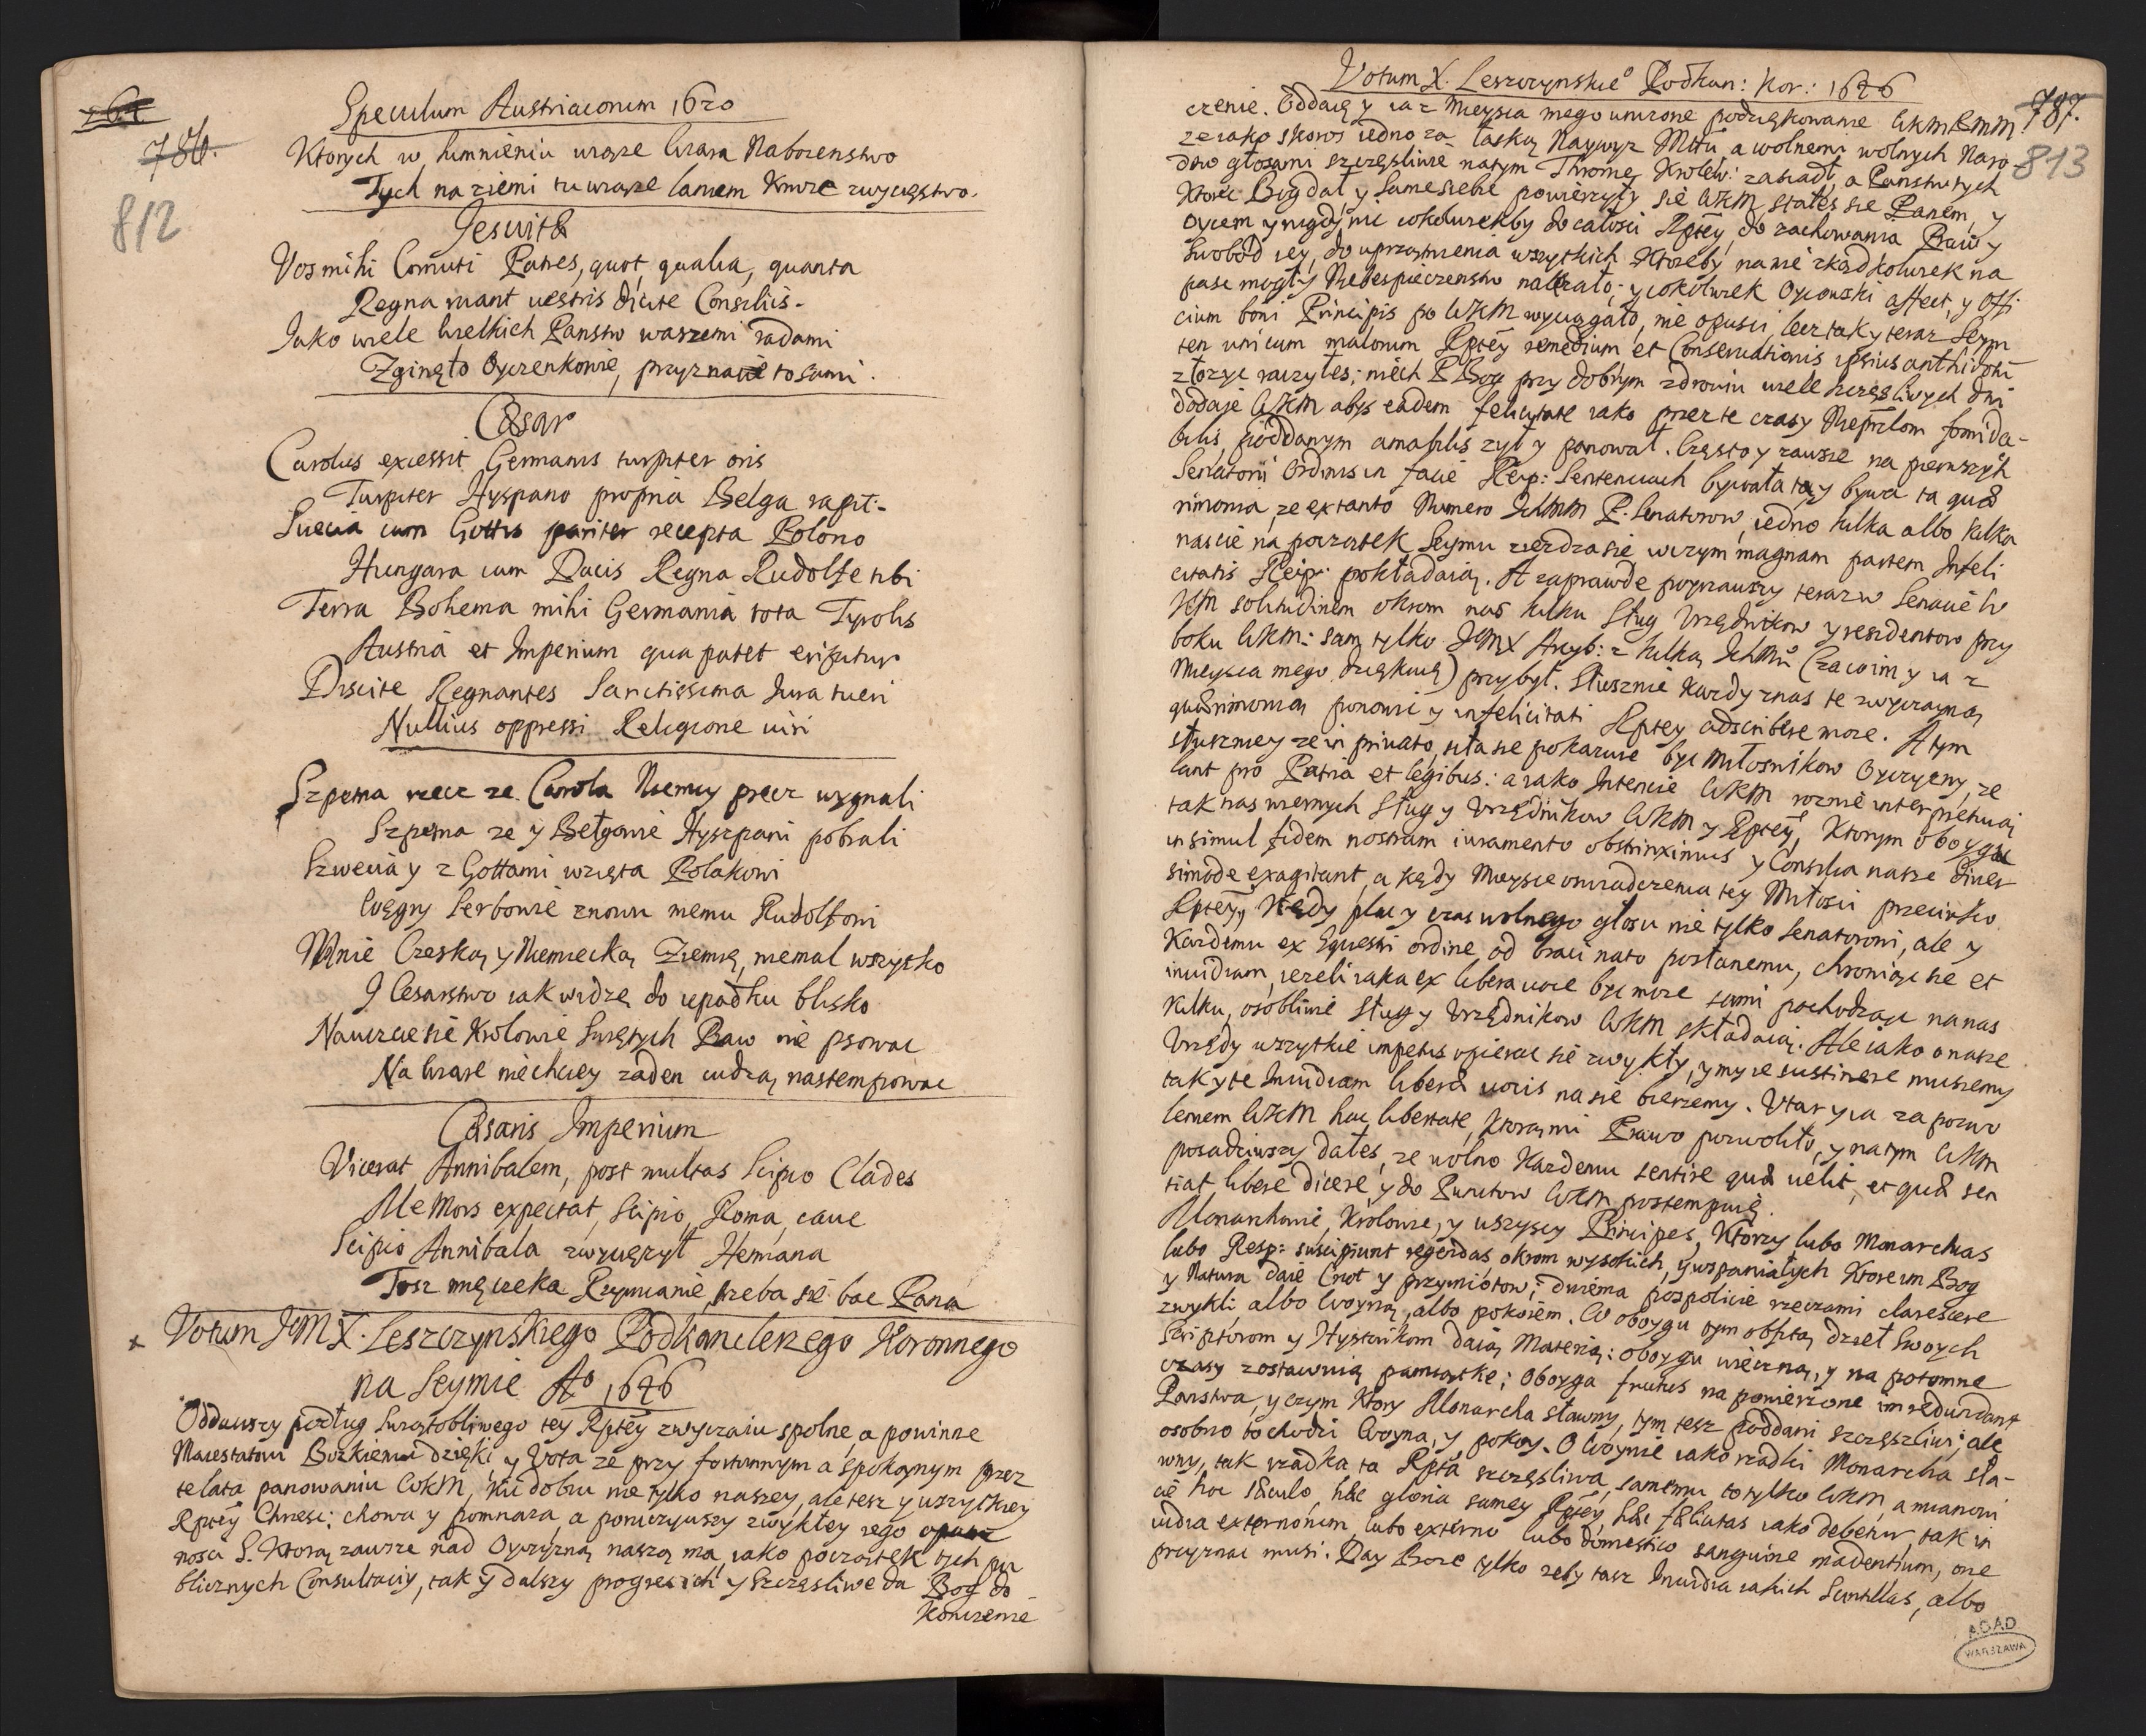 Speculum Austriaconum 1620
786.
812
Ktorych w sumnieniu wiąże wiara Nabozenstwo
Tych na ziemi tu wiąże lamem Krwie zwycęstwo.
Jesuitæ
Vos mihi Cornuti Patres, quot, qualia, quanta
Regna ruant uestris dicite Consiliis.
Iako wiele wielkich Panstw waszemi radami
Zginęło Oyczenkowie, przyznacie to sami.
Cæsar
Carolus excessit Germanis turpiter oris
Turpiter Hyspano propria Belga rapit.
Suecia cum Gottis pariter recepta Polono
Hungara cum Dacis Regna Rudolfe tibi
Terra Bohema mihi Germania tota Tyrolis
Austria et Imperium qua patet eripitur
Discite Regnantes Sanctissima Iura tueri
Nullius oppressi Religione uiri
Szpetna rzecz ze Carola Niemcy precz wygnali
Szpetna ze y Belgowie Hyszpani pobrali
Szwecia y z Gottami wzięta Polakowi
Węgry Serbowie znowu memu Rudolfowi
Mnie Czeską y Niemiecką Ziemię, niemal wszytko
I Cesarstwo iak widzę do upadku blisko
Nauczcie się Krolowie Swiętych Praw nie psowac
Na wiare niechciey zaden cudzą nastempowac
Cæsaris Imperium
Vicerat Annibalem, post multas Scipio Clades
Ale Mors expectat, Scipio, Roma, caue
Scipio Annibala zwyciężył Hetmana
Tosz męczeka Rzymianie, trzeba się bac Pana
x Votum JEM X. Leszczynskiego Podkanclerzego Koronnego
na Seymie Aº 1646
Oddawszy podług Swiątobliwego tey Rptey zwyczaiu spolne, a powinne
Maiestatowi Bozkiemu dzięki y Vota ze przy fortunnym a spokoynym przez
te lata panowaniu WKM, ku dobru nie tylko naszey, ale tesz y wszytkiey
Rptey Chrzesc: chowa y pomnaza, a poruczywszy zwykłey iego opatrz
nosci S. Ktorą zawsze nad Oyczyzną naszą ma, iako początek tych pu
blicznych Consultaciy, tak y dalszy progress ich y szczęsliwe da Bog do
konczenie
Votum X. Leszczynskieº Podkan: Kor: 1646
787.
813
czenie. Oddaię y ia z Mieysca mego unizone podziękowanie WKMPMM
ze iako skoros iedno za łaską Naywyz Mttu a wolnemi wolnych Naro
dow głosami szczęsliwie na tym Thronie Krolew: zasiadł, a Panstw tych
ktorec Bog dał, y same siebie powierzyły się WKM stałes się Panem, y
Oycem y nigdy nic cokolwiekby do całosci Rptey, do zachowania Praw y
Swobod iey, do uprzątnienia wszytkich ktoreby na nie zkądkolwiek na
pasc mogły Niebespieczenstw nalezało; y cokolwiek Oycowski affect, y Offi
cium boni Principis po WKM wyciągało, nie opusci, lecz tak y teraz Seym
ten unicum malorum Rptey remedium et Conseruationis ipsius anthidotu
złozyc raczyłes; niech P Bog przy dobrym zdrowiu wiele szczęsliwych dni
dodaie WKM abys eadem felicitate iako przez te czasy Nieprlom formida-
bilis, poddanym amabilis zył y panował. Często y zawsze na pierwszych
Senatorii Ordinis in facie Reip: Sentenciach bywała tey bywa ta quæ
rimonia, ze ex tanto Numero IchMM P. Senatorow, iedno kilka albo kilka
nascie na początek Seymu ziezdza się, w czym magnam partem Infeli
citatis Reip: pokładaią. A zaprawde poyrzawszy teraz w Senacie W
KM solitudinem okrom nas kilku Sług Urzędnikow y residentow przy
boku WKM: sam tylko JEMX Arcyb: z kilką IchMci (za co im y ia z
Mieysca mego dziękuię) przybył. Słusznie kazdy z nas te zwyczayną
quærimonią ponowic y infelicitati Rptey adscribere moze. A tym
słuszniey ze in priuato, siła się pokazuie byc Miłosnikow Oyczyzny, ze
lant pro Patria et legibus: a iako Intencie WKM roznie interpretuią
tak nas wiernych Sług y Urzędnikow WKM y Rptey, ktorym oboygu
insimul fidem nostram iuramento obstrinximus y Consilia nasze diuer
simode exagitant, a kędy Mieysce oswiadczenia tey Miłosci przeciwko
Rptey, kędy plac y czas wolnego głosu nie tylko Senatorowi, ale y
kazdemu ex Equestri ordine od braci nato posłanemu, chroniąc się et
inuidiam, iezeli iaka ex libera uoce byc moze sami pochodząc na nas
kilku, osobliwie Sług y Urzędnikow WKM składaią. Ale iako o nasze
Urzędy wszytkie impetus opierac się zwykły, y my ie sustinere musiemy
tak y te Inuidiam liberæ uocis na się bierzemy. Utar y ia za pozwo
leniem WKM hac libertate, ktorą mi Prawo pozwoliło, y na tym WKM
posadziwszy dałes, ze wolno kazdemu sentire quæ uelit, et quæ sen
tiat libere dicere, y do Punctow WKM postempuię.
Monarchowie, Krolowie, y wszyscy Principes, ktorzy lubo Monarchias
lubo Resp: suscipiunt regendas, okrom wysokich, y wspaniałych ktore im Bog
y Natura daie Cnot y przymiotow; dwiema pospolicie rzeczami clarescere
zwykli, albo Woyną, albo pokoiem. W oboygu tym obfitą dzieł swoych
Scriptorom y Hystorikom daią Materią: oboygu wieczną, y na potomne
czasy zostawuią pamiątke; Oboyga fructus na powierzone im redundant
Panstwa, y czym ktory Monarcha sławny, tym tesz poddani szczęszliwi; ale
osobno to chodzi Woyna, y pokoy. O Woynie iako rzadki Monarcha sła-
wny, tak rzadka ta Rpta szczęsliwa, samemu to tylko WKM, a mianowi
cie hoc sæculo, hæc gloria samey Rptey, hæc fælicitas iako debetur, tak in
uidia externorum, lubo externo lubo domestico sanguine madentium, one
przyznac musi. Day Boze tylko zeby tasz Inuidia iakich Scintillas, albo
A.G.A.D.
WARSZAWA